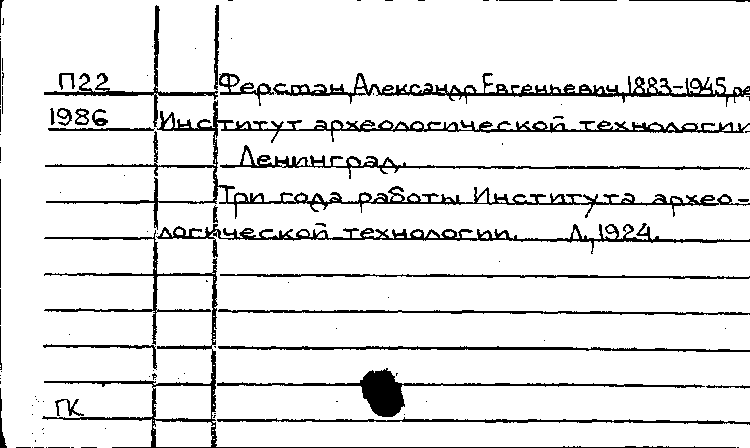 П22 Ферсман, Александр Евгеньевич, 1883-1945, ре
1986 Институт археологической технологии
Ленинград.
Три года работы Института архео-
логической технологии. Л., 1924.
ГК